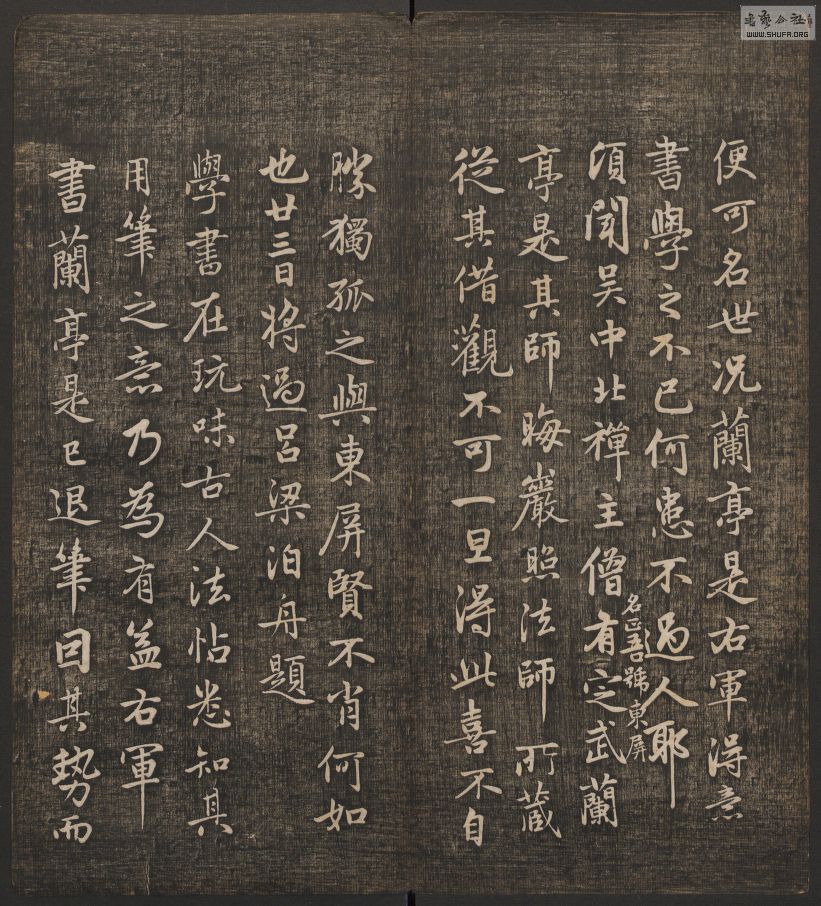 便可名世况蘭亭是右軍得意
書學之不已何患不過人耶
頃聞吴中北禪主僧有定武蘭
名正吾號東屏
亭是其師晦巖照法師所藏
從其借觀不可一旦得此喜不自
勝獨孤之與東屏賢不肖何如
也廿三日將過吕梁泊舟題
學書在玩味古人法帖悉知其
用筆之意乃為有益右軍
書蘭亭是已退筆因其勢而
書藝公社
WWW.SHUFA.ORG